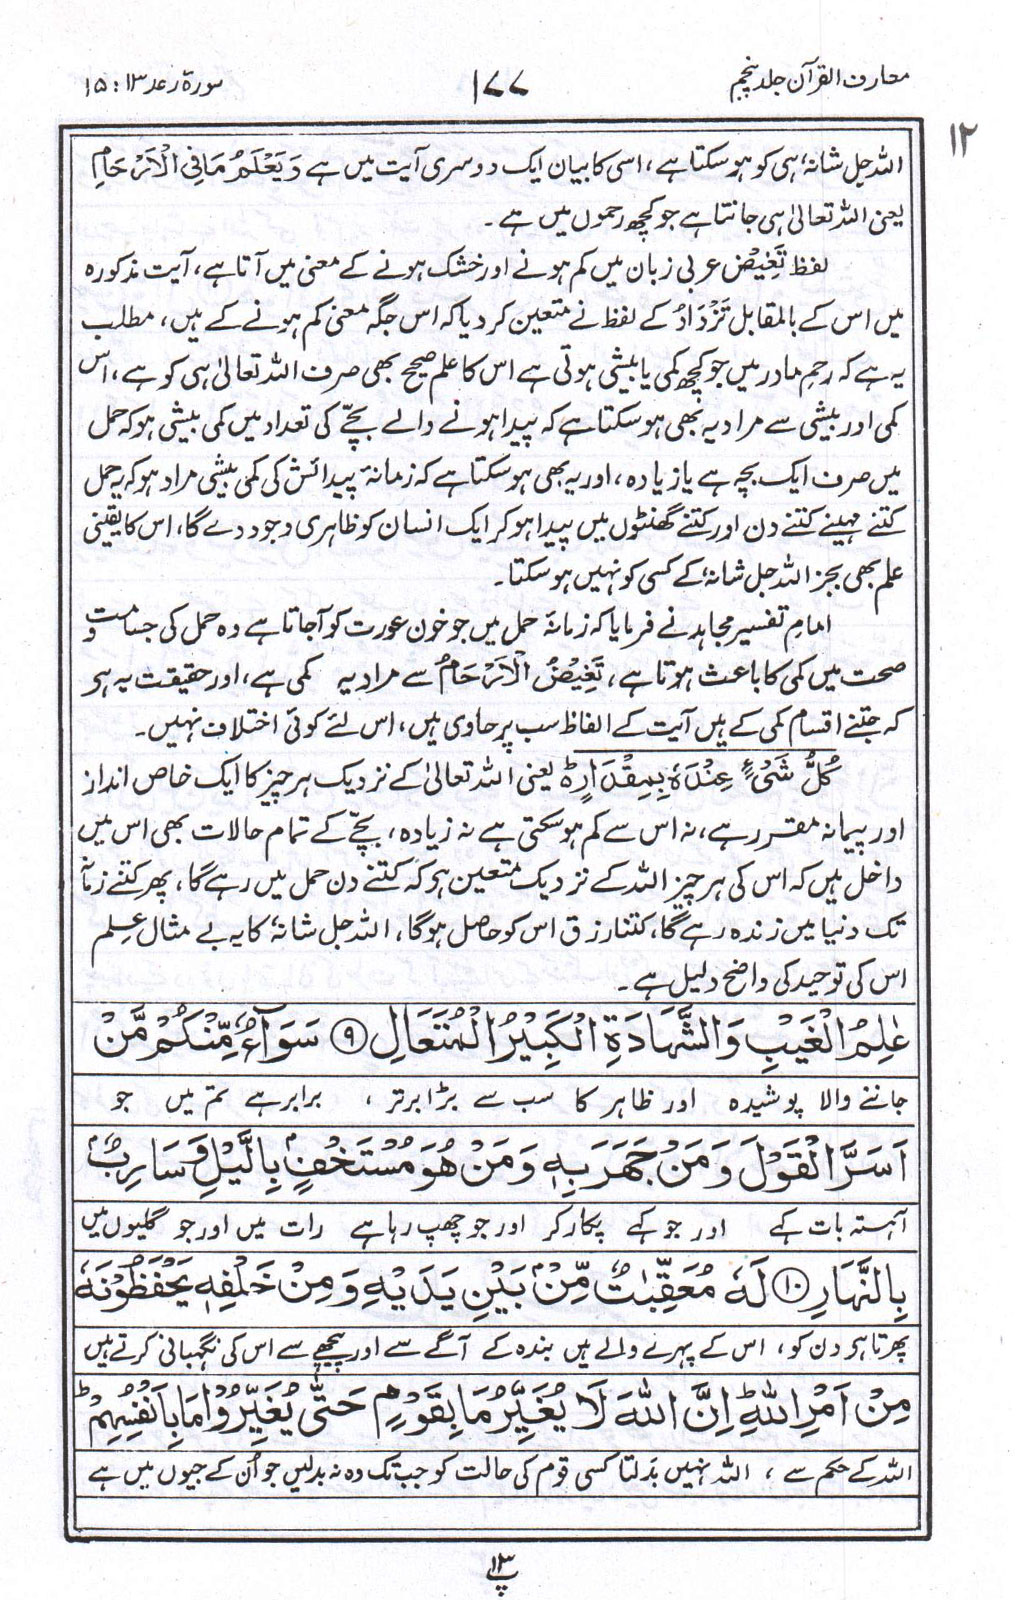 معارف القرآن جلد پنجم
۱۷۷
سورۃ رعد ۱۳ : ۱۵
۱۲
اللہ جل شانہٗ ہی کو ہوسکتا ہے، اسی کا بیان ایک دوسری آیت میں ہے وَيَعْلَمُ مَا فِي الْاَرْحَامِ
یعنی اللہ تعالیٰ ہی جانتا ہے جو کچھ رحموں میں ہے۔
لفظ تَغِيْضُ عربی زبان میں کم ہونے اور خشک ہونے کے معنی میں آتا ہے، آیت مذکورہ
میں اس کے بالمقابل تَزْدَادُ کے لفظ نے متعین کردیا کہ اس جگہ معنی کم ہونے کے ہیں، مطلب
یہ ہے کہ رحم مادر میں جو کچھ کمی یا بیشی ہوتی ہے اس کا علم صحیح بھی صرف اللہ تعالیٰ ہی کو ہے، اس
کمی اور بیشی سے مراد یہ بھی ہوسکتا ہے کہ پیدا ہونے والے بچّے کی تعداد میں کمی بیشی ہو کہ حمل
میں صرف ایک بچہ ہے یا زیادہ، اور یہ بھی ہوسکتا ہے کہ زمانۂ پیدائش کی کمی بیشی مراد ہو کہ یہ حمل
کتنے مہینے کتنے دن اور کتنے گھنٹوں میں پیدا ہو کر ایک انسان کو ظاہری وجود دے گا، اس کا یقینی
علم بھی بجز اللہ جل شانہٗ کے کسی کو نہیں ہوسکتا۔
امام تفسیر مجاہد نے فرمایا کہ زمانۂ حمل میں جو خون عورت کو آجاتا ہے وہ حمل کی جسامت و
صحت میں کمی کا باعث ہوتا ہے، تَغِيْضُ الْاَرْحَامُ سے مراد یہ کمی ہے، اور حقیقت یہ ہر
کہ جتنے اقسام کمی کے ہیں آیت کے الفاظ سب پر حاوی ہیں، اس لئے کوئی اختلاف نہیں۔
كُلُّ شَيْءٍ عِنْدَهٗ بِمِقْدَارٍ یعنی اللہ تعالیٰ کے نزدیک ہر چیز کا ایک خاص انداز
اور پیمانہ مقرر ہے، نہ اس سے کم ہوسکتی ہے نہ زیادہ، بچّے کے تمام حالات بھی اس میں
داخل ہیں کہ اس کی ہر چیز اللہ کے نزدیک متعین ہو کہ کتنے دن حمل میں رہے گا، پھر کتنے زمانہ
تک دنیا میں زندہ رہے گا، کتنا رزق اس کو حاصل ہوگا، اللہ جل شانہٗ کا یہ بے مثال علم
اس کی توحید کی واضح دلیل ہے۔
عٰلِمُ الْغَيْبِ وَالشَّهَادَةِ الْكَبِيْرُ الْمُتَعَالِ ۹ سَوَآءٌ مِّنْكُمْ مَّنْ
جاننے والا پوشیدہ اور ظاہر کا سب سے بڑا برتر ، برابر ہے تم میں جو
اَسَرَّ الْقَوْلَ وَمَنْ جَهَرَ بِهٖ وَمَنْ هُوَ مُسْتَخْفٍۢ بِالَّيْلِ وَسَارِبٌۢ
آہستہ بات کہے اور جو کہے پکار کر اور جو چھپ رہا ہے رات میں اور جو گلیوں میں
بِالنَّهَارِ ۱۰ لَهٗ مُعَقِّبٰتٌ مِّنْۢ بَيْنِ يَدَيْهِ وَمِنْ خَلْفِهٖ يَحْفَظُوْنَهٗ
پھرتا ہر دن کو، اس کے پہرے والے ہیں بندہ کے آگے سے اور پیچھے سے اس کی نگہبانی کرتے ہیں
مِنْ اَمْرِ اللّٰهِ ؕ اِنَّ اللّٰهَ لَا يُغَيِّرُ مَا بِقَوْمٍ حَتّٰى يُغَيِّرُوْا مَا بِاَنْفُسِهِمْ ؕ
اللہ کے حکم سے ، اللہ نہیں بدلتا کسی قوم کی حالت کو جب تک وہ نہ بدلیں جو اُن کے جیوں میں ہے
۱۳
پ